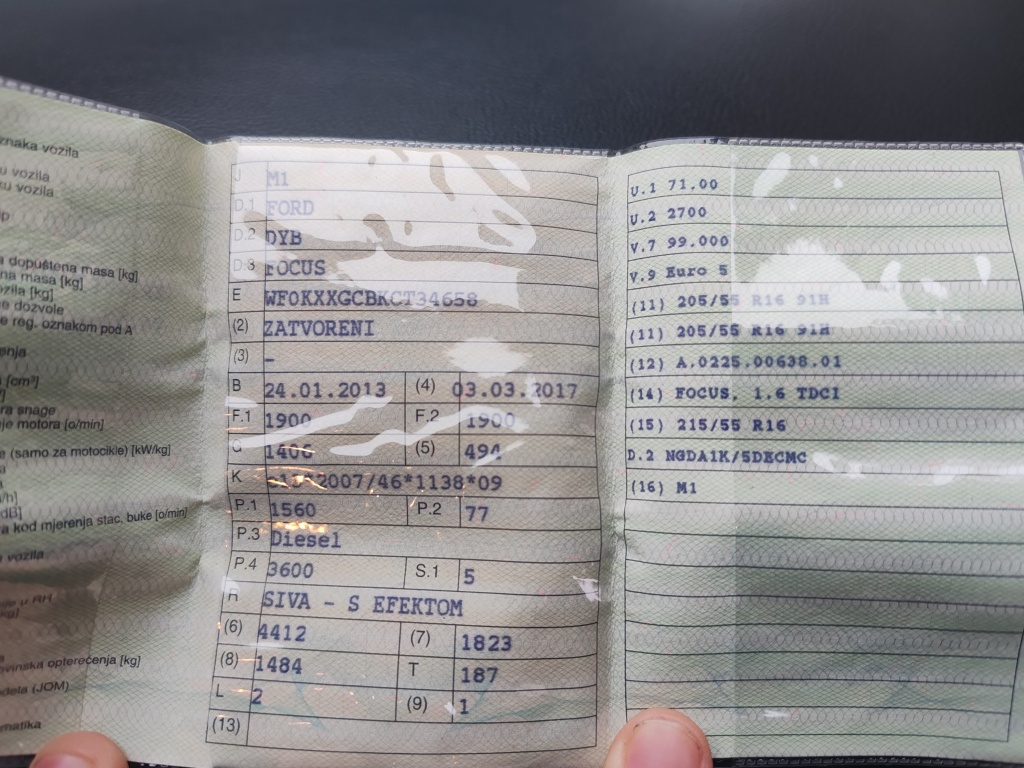 znaka vozila
u vozila
u vozila
ip
a dopuštena masa [kg]
na masa [kg]
ozila [kg]
e dozvole
e reg. oznakom pod A
enja
[cm³]
ra snage
je motora [o/min]
e (samo za motocikle) [kW/kg]
/h]
dB]
a kod mjerenja stac. buke [o/min]
vozila
u RH
ovinska opterećenja [kg]
dela (JOM)
matika
J M1
D.1 FORD
D.2 DYB
D.3 FOCUS
E WF0KXXGCBKCT34658
(2) ZATVORENI
(3) –
B 24.01.2013 (4) 03.03.2017
F.1 1900 F.2 1900
G 1406 (5) 494
K 2007/46*1138*09
P.1 1560 P.2 77
P.3 Diesel
P.4 3600 S.1 5
R SIVA - S EFEKTOM
(6) 4412 (7) 1823
(8) 1484 T 187
L 2 (9) 1
(13)
U.1 71.00
U.2 2700
V.7 99.000
V.9 Euro 5
(11) 205/55 R16 91H
(11) 205/55 R16 91H
(12) A.0225.00638.01
(14) FOCUS, 1.6 TDCI
(15) 215/55 R16
D.2 NGDA1K/5DECMC
(16) M1